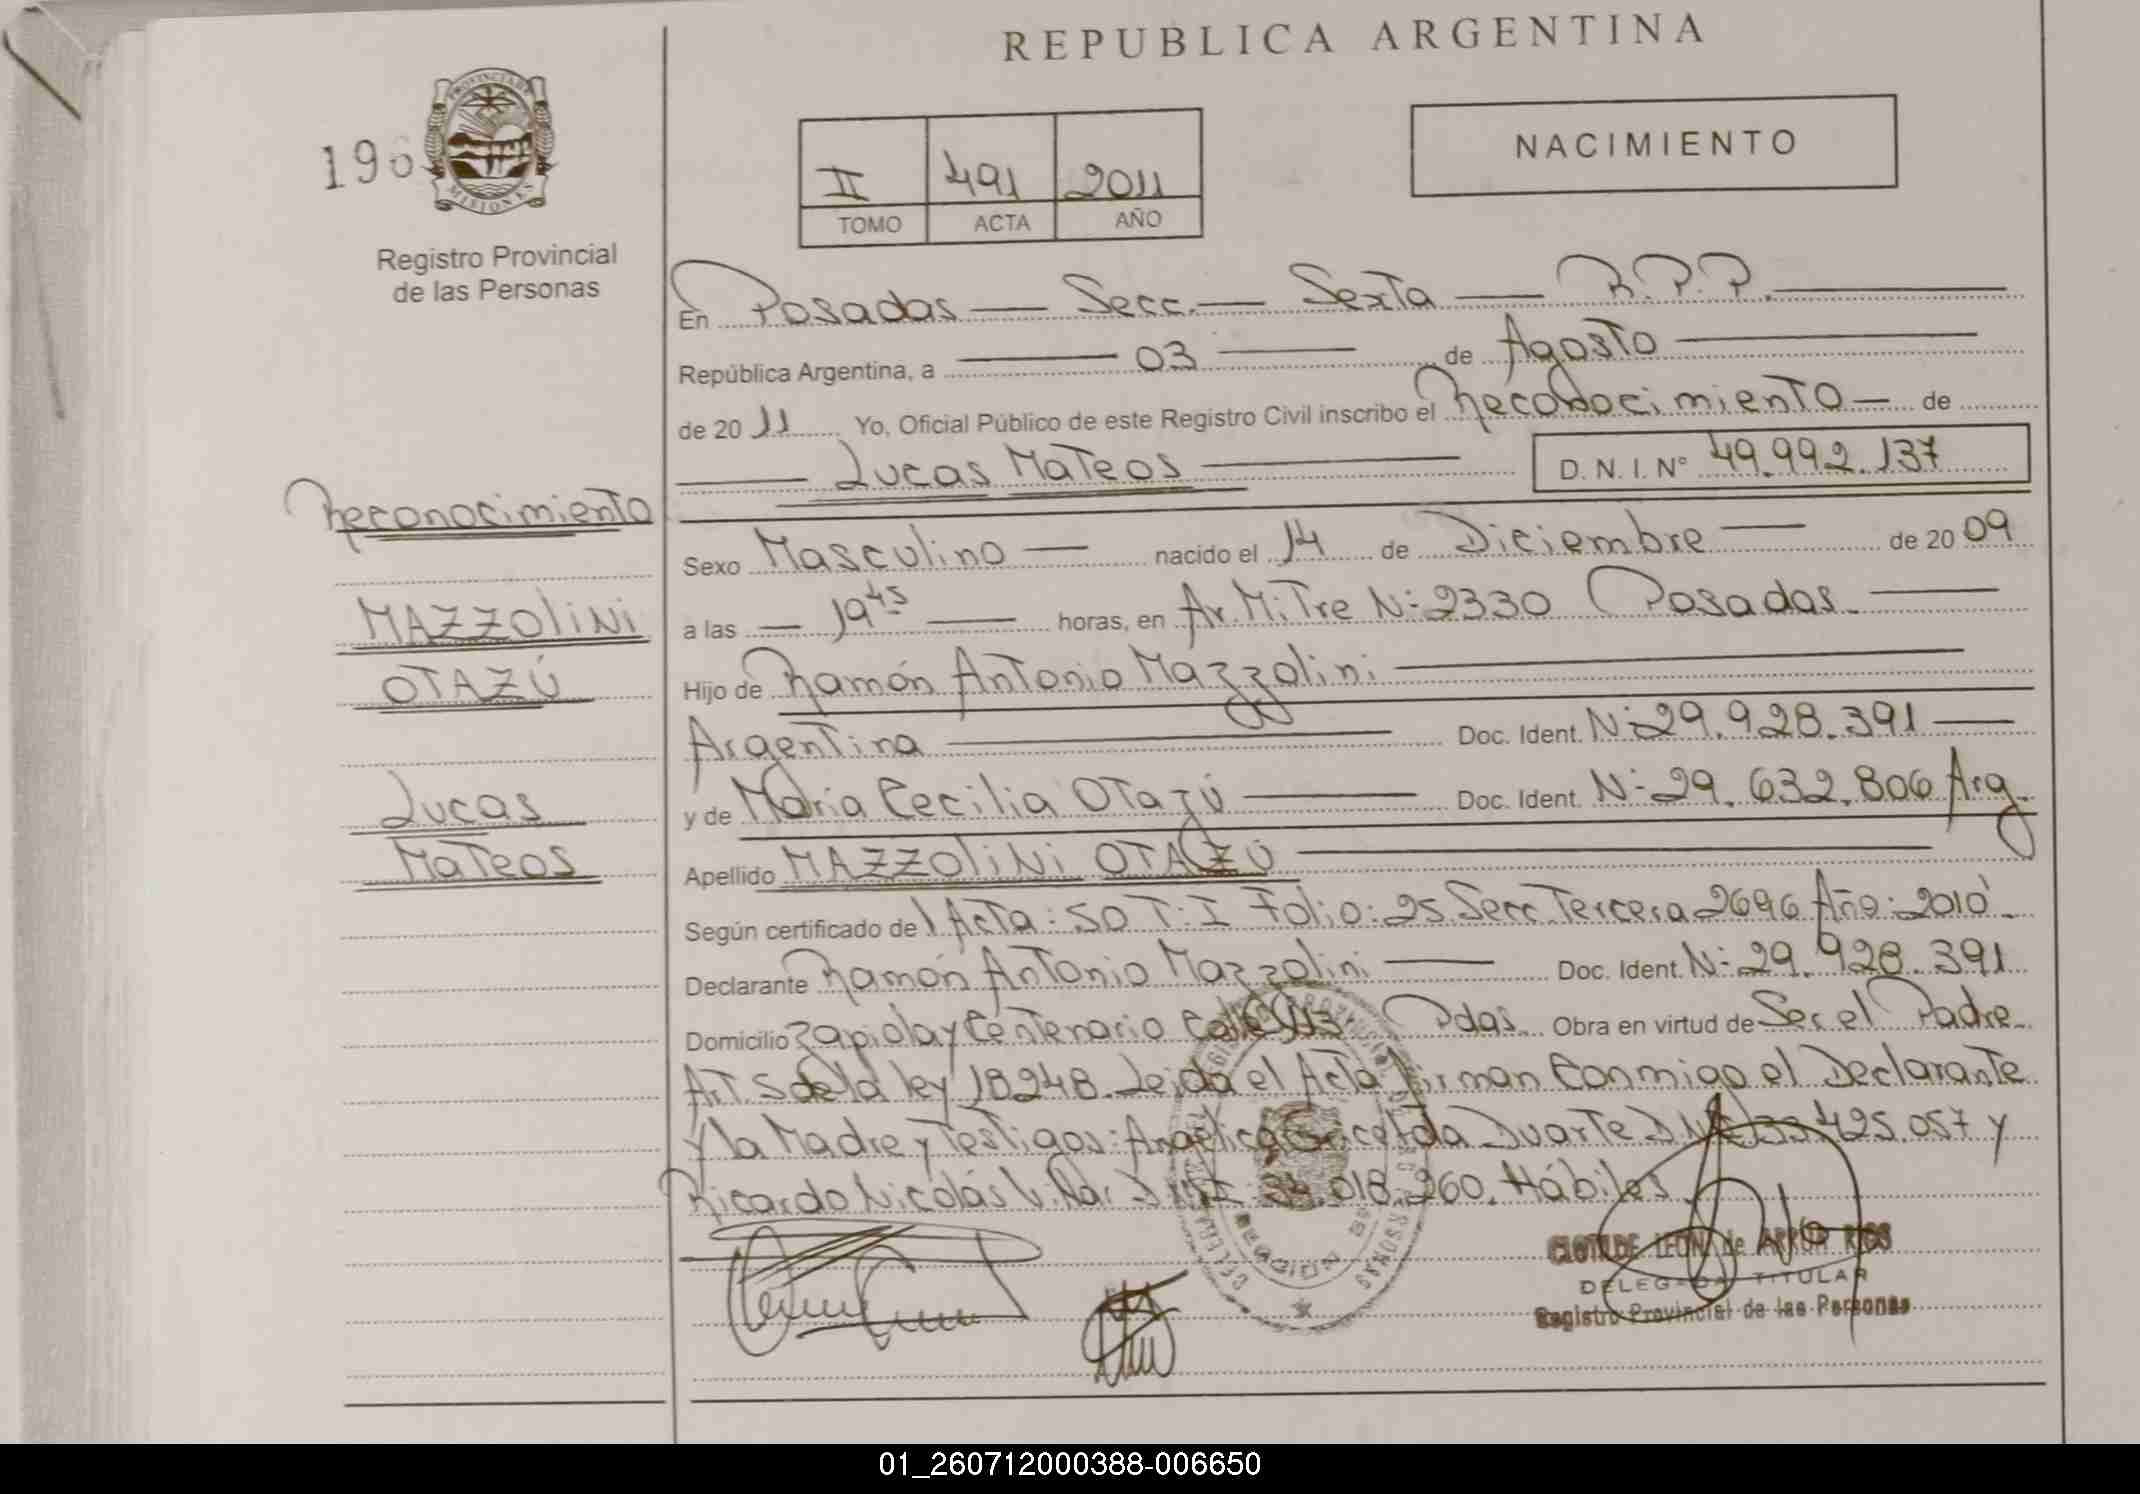 REPUBLICA ARGENTINA
196
PROVINCIA DE MISIONES
Registro Provincial
de las Personas
II 491 2011
TOMO ACTA AÑO
NACIMIENTO
En Posadas — Secc. — Sexta — R.P.P.
República Argentina, a 03 de Agosto
de 2011 Yo, Oficial Público de este Registro Civil inscribo el Reconocimiento — de
Lucas Mateos D.N.I. Nº 49.992.137
Reconocimiento
MAZZOLINI
OTAZÚ
Lucas
Mateos
Sexo Masculino — nacido el 14 de Diciembre — de 2009
a las — 19 45 — horas, en Av. Mitre N: 2330 Posadas.
Hijo de Ramón Antonio Mazzolini
Argentina Doc. Ident. N: 29.928.391
y de María Cecilia Otazú Doc. Ident. N: 29.632.806 Arg.
Apellido MAZZOLINI OTAZÚ
Según certificado de Acta: 50 T: I Folio: 25 Secc. Tercera 2696 Año: 2010
Declarante Ramón Antonio Mazzolini Doc. Ident. N: 29.928.391
Domicilio Zapiola y Centenario Pdas. Obra en virtud de Ser el Padre
Art 5 de la ley 18248. Leida el Acta Firman Conmigo el Declarante
y la Madre y Testigos: Angélica Duarte 425.057 y
Ricardo Nicolás Villar .018.260. Hábiles.
CLOTILDE LEON de
DELEGADA TITULAR
Registro Provincial de las Personas
01_260712000388-006650